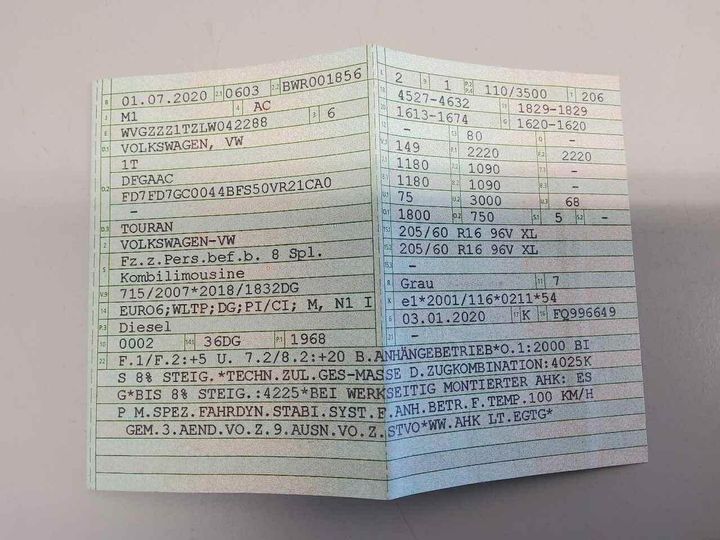 B 01.07.2020 2.1 0603 2.2 BWR001856
J M1 4 AC
E WVGZZZ1TZLW042288 3 6
D.1 VOLKSWAGEN, VW
1T
D.2 DFGAAC
FD7FD7GC0044BFS50VR21CA0
–
D.3 TOURAN
2 VOLKSWAGEN-VW
5 Fz.z.Pers.bef.b. 8 Spl.
Kombilimousine
V.9 715/2007*2018/1832DG
14 EURO6;WLTP;DG;PI/CI; M, N1 I
P.3 Diesel
10 0002 14.1 36DG P.1 1968
L 2 9 1 P.2 P.4 110/3500 T 206
18 4527-4632 19 1829-1829
20 1613-1674 G 1620-1620
– 13 80 Q –
V.7 149 F.1 2220 F.2 2220
7.1 1180 7.2 1090 –
8.1 1180 8.2 1090 –
U.1 75 U.2 3000 U.3 68
O.1 1800 O.2 750 S.1 5 S.2 –
15.1 205/60 R16 96V XL
15.2 205/60 R16 96V XL
15.3 –
R Grau 11 7
K e1*2001/116*0211*54
6 03.01.2020 17 K 16 FQ996649
21 –
22 F.1/F.2:+5 U. 7.2/8.2:+20 B.ANHÄNGEBETRIEB*O.1:2000 BI
S 8% STEIG.*TECHN.ZUL.GES-MASSE D.ZUGKOMBINATION:4025K
G*BIS 8% STEIG.:4225*BEI WERKSEITIG MONTIERTER AHK: ES
P M.SPEZ.FAHRDYN.STABI.SYST.F.ANH.BETR.F.TEMP.100 KM/H
GEM.3.AEND.VO.Z.9.AUSN.VO.Z.STVO*WW.AHK LT.EGTG*